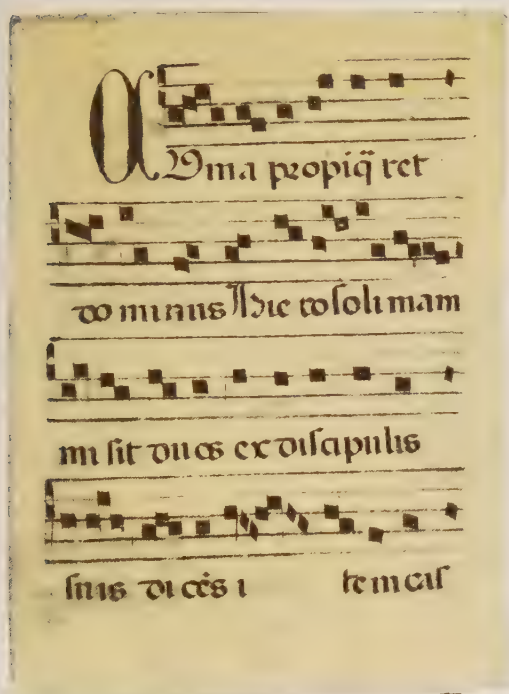 CUma propiq̃ ret
do minus Hie rosoli mam
mi sit duos ex discipulis
suis di cẽs i te in cas